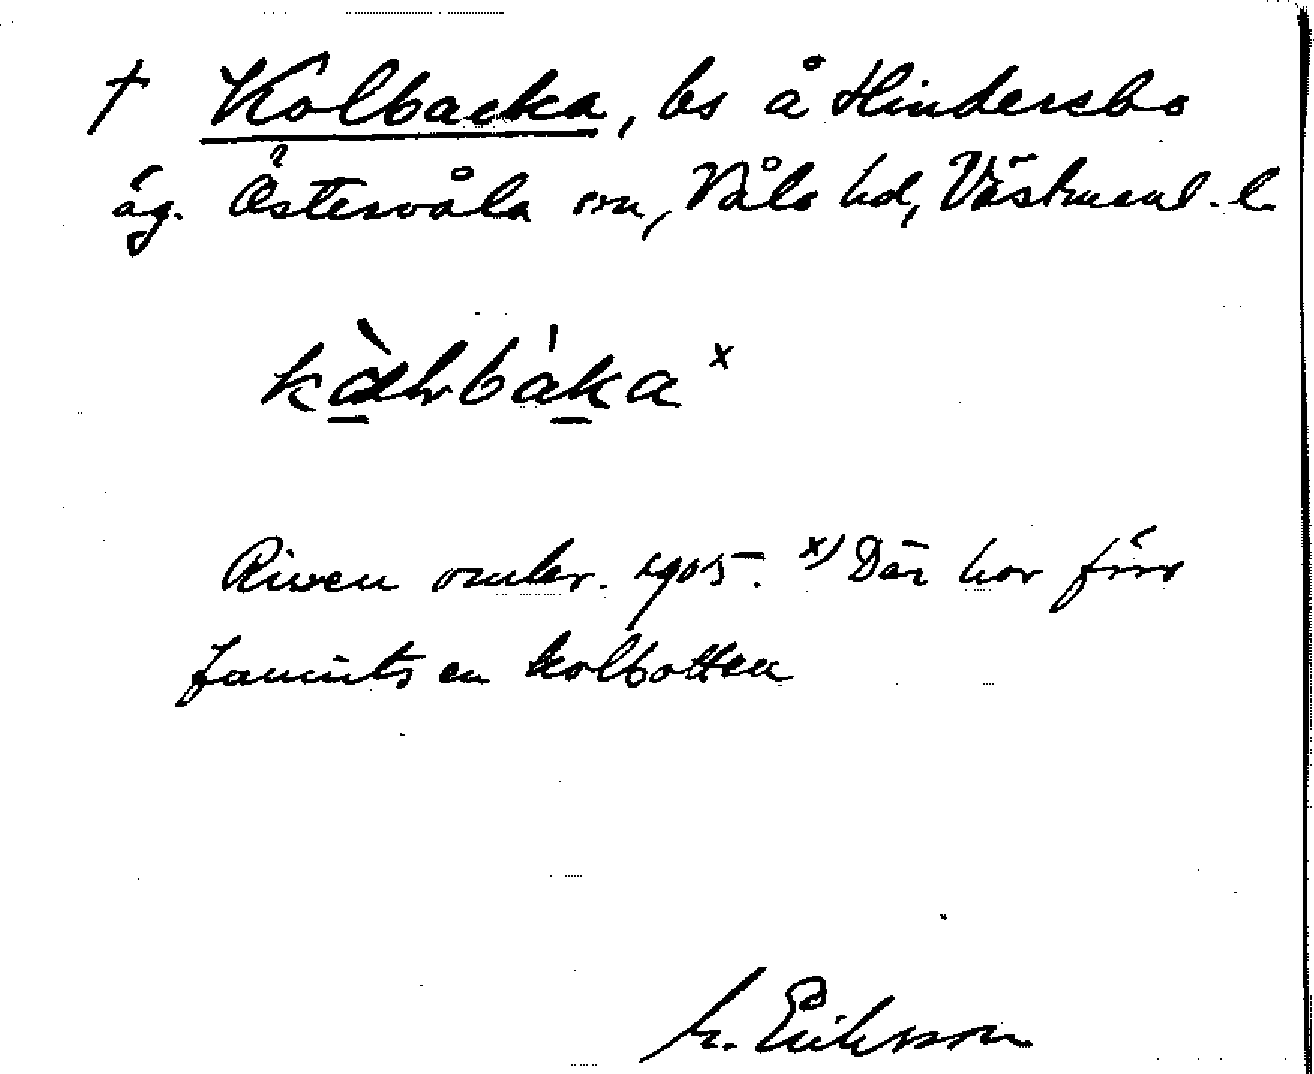 † Kolbacka, ls å Hindersbo
äg. Östervåla sn, Våla hd, Västmanl. l.
Riven omkr. 1905. x) Där har förr
funnits en kolbotten
Eriksson